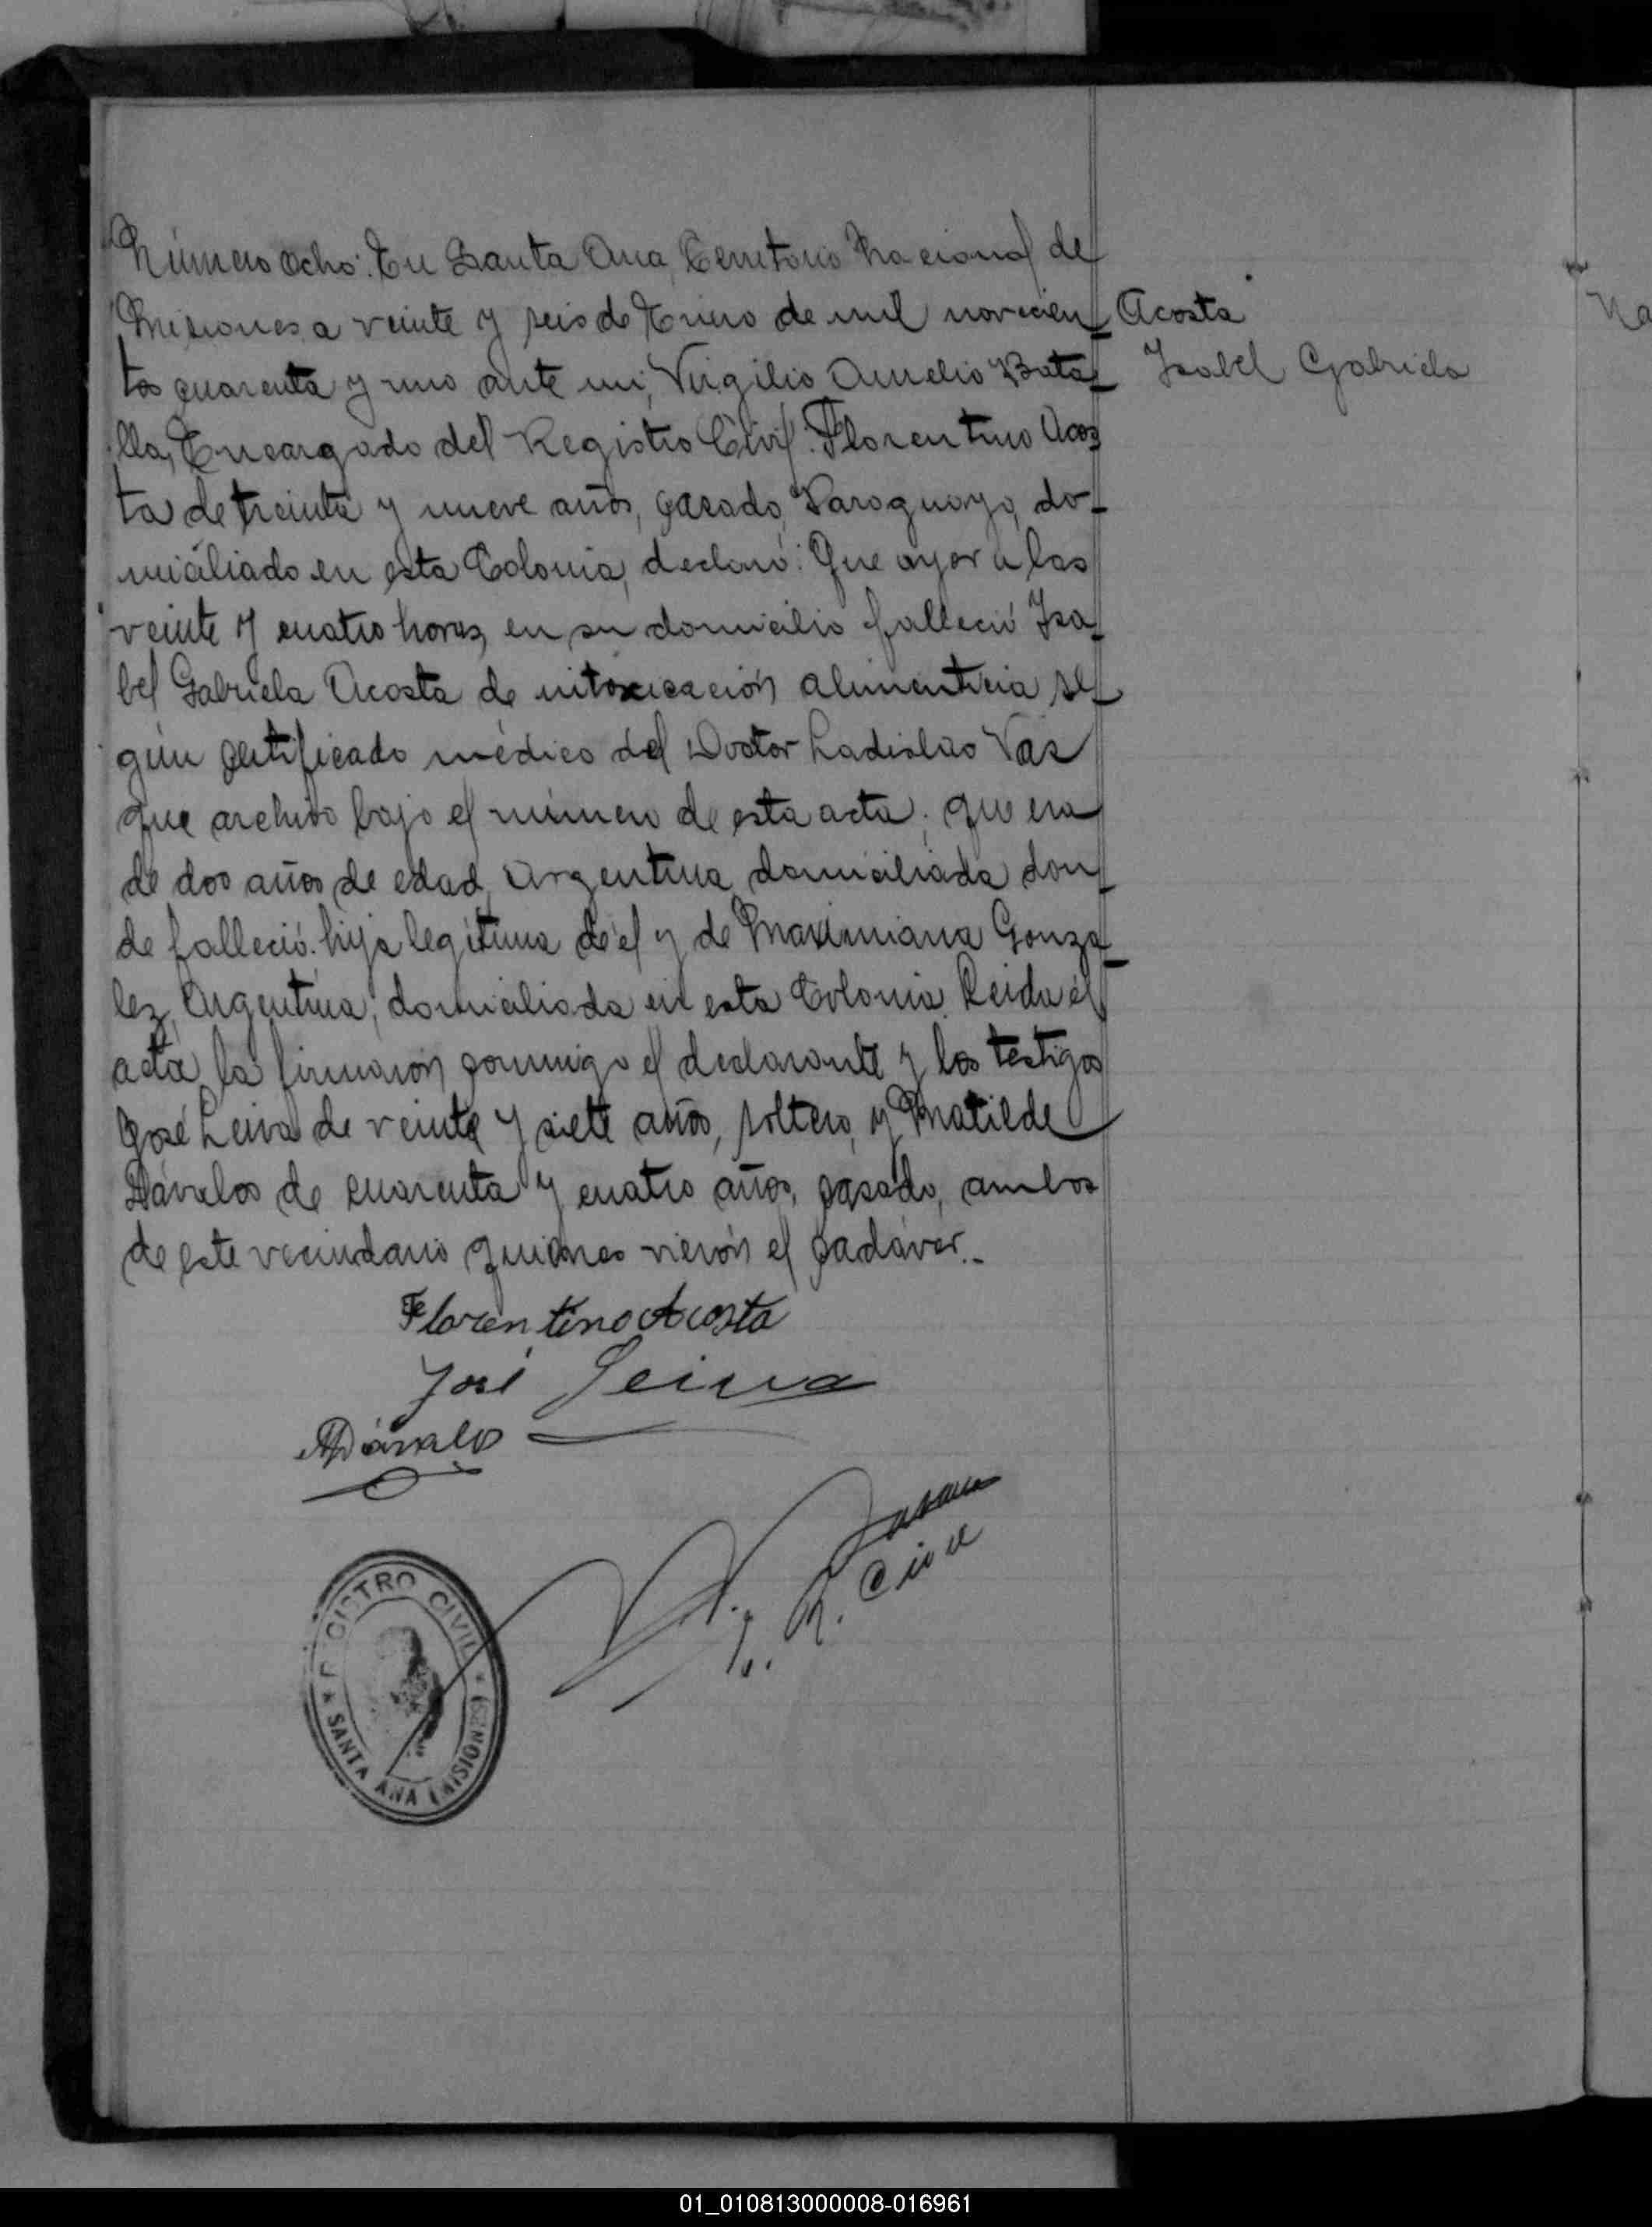 Número ocho: En Santa Ana, Territorio Nacional de
Misiones a veinte y seis de Enero de mil novecien-
tos cuarenta y uno ante mi, Virgilio Aurelio Bata-
lla, Encargado del Registro Civil: Florentino Acos-
ta de treinta y nueve años, casado, Paraguayo, do-
miciliado en esta Colonia, declaró: Que ayer a las
veinte y cuatro horas, en su domicilio falleció Isa-
bel Gabriela Acosta de intoxicación alimenticia se-
gún certificado médico del Doctor Ladislao Vaz
que archivo bajo el número de esta acta; que era
de dos años de edad, Argentina, domiciliada don-
de falleció. hija legítima de él y de Maximiana Gonza-
lez, Argentina, domiciliada en esta Colonia. Leida el
acta la firmarón conmigo el declarante y los testigos
José Leiva de veinte y siete años, soltero, y Matilde
Dávalos de cuarenta y cuatro años, casado, ambos
de este vecindario quienes vierón el cadáver.-
Acosta
Isabel Gabriela
Florentino Acosta
José Leiva
MDávalos
R. Civil
REGISTRO CIVIL
SANTA ANA (MISIONES)
Na
01_010813000008-016961